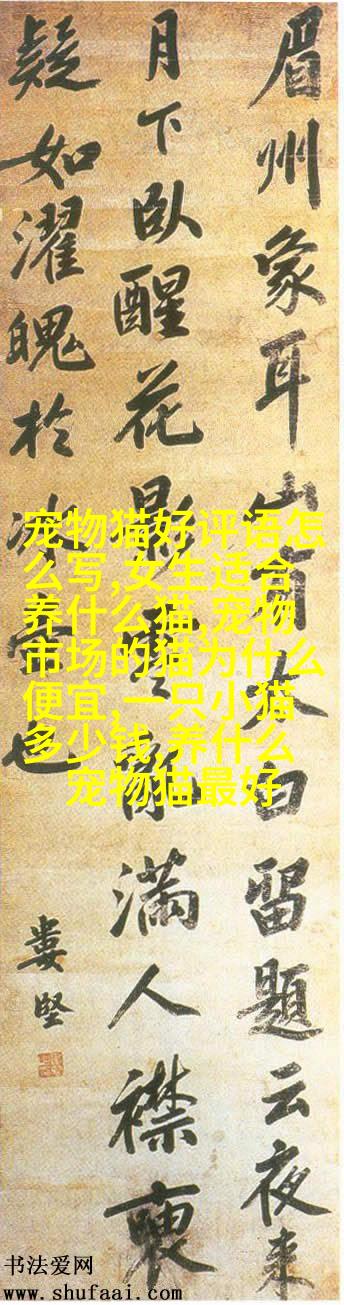 眉州象耳山有太白留題云夜来
月下臥醒花影零亂滿人襟
疑如濯魄於冰壺也
婁堅
宠物猫好评语怎
么写,女生适合
养什么猫,宠物
市场的猫为什么
便宜,一只小猫
多少钱,养什么
宠物猫最好
书法爱网
www.shufaai.com